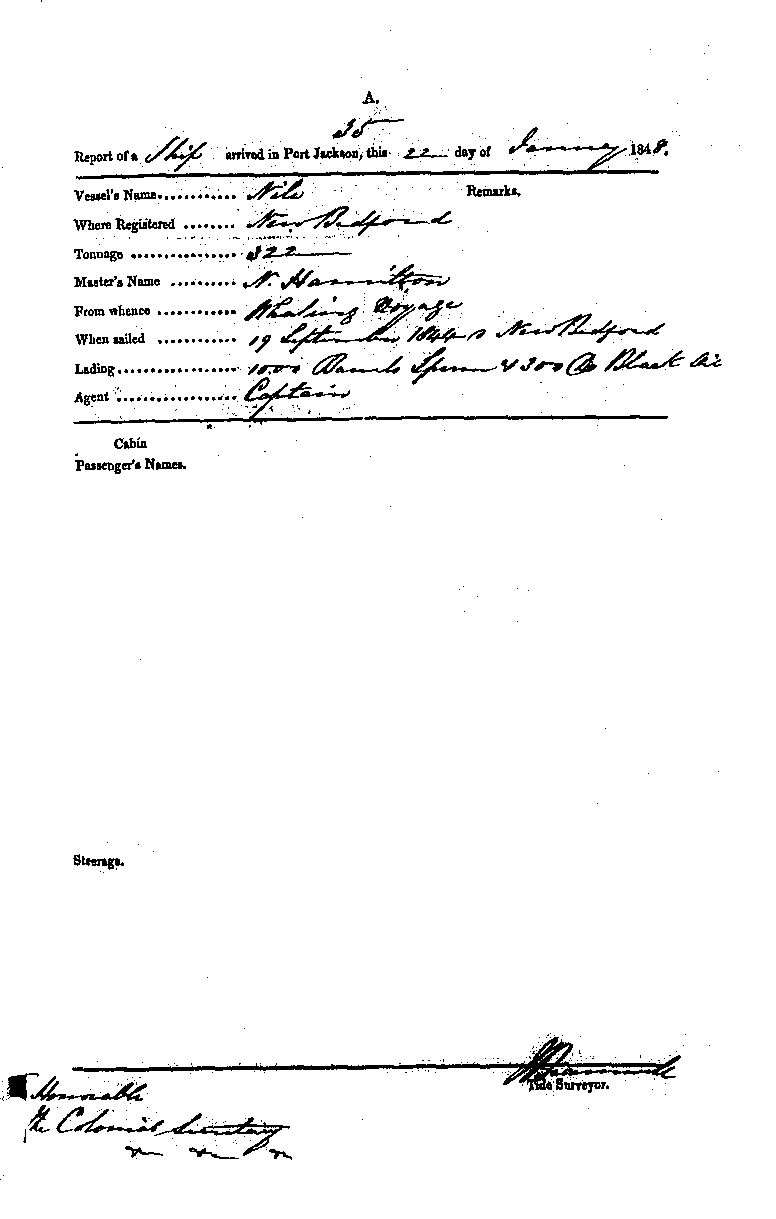 A.
35
Report of a Ship arrived in Port Jackson, this 22 day of January 1848.
Vessel's Name............ Nile Remarks.
Where Registered ........ New Bedford
Tonnage ................ 322
Master's Name .......... N. Hamilton
From whence ............ Whaling Voyage
When sailed ............ 19 September 1844 New Bedford
Lading.................. 1000 Barrels Sperm & 300 Do Black Oil
Agent .................. Captain
Cabin
Passenger's Names.
Steerage.
Tide Surveyor.
Honorable
The Colonial Secretary